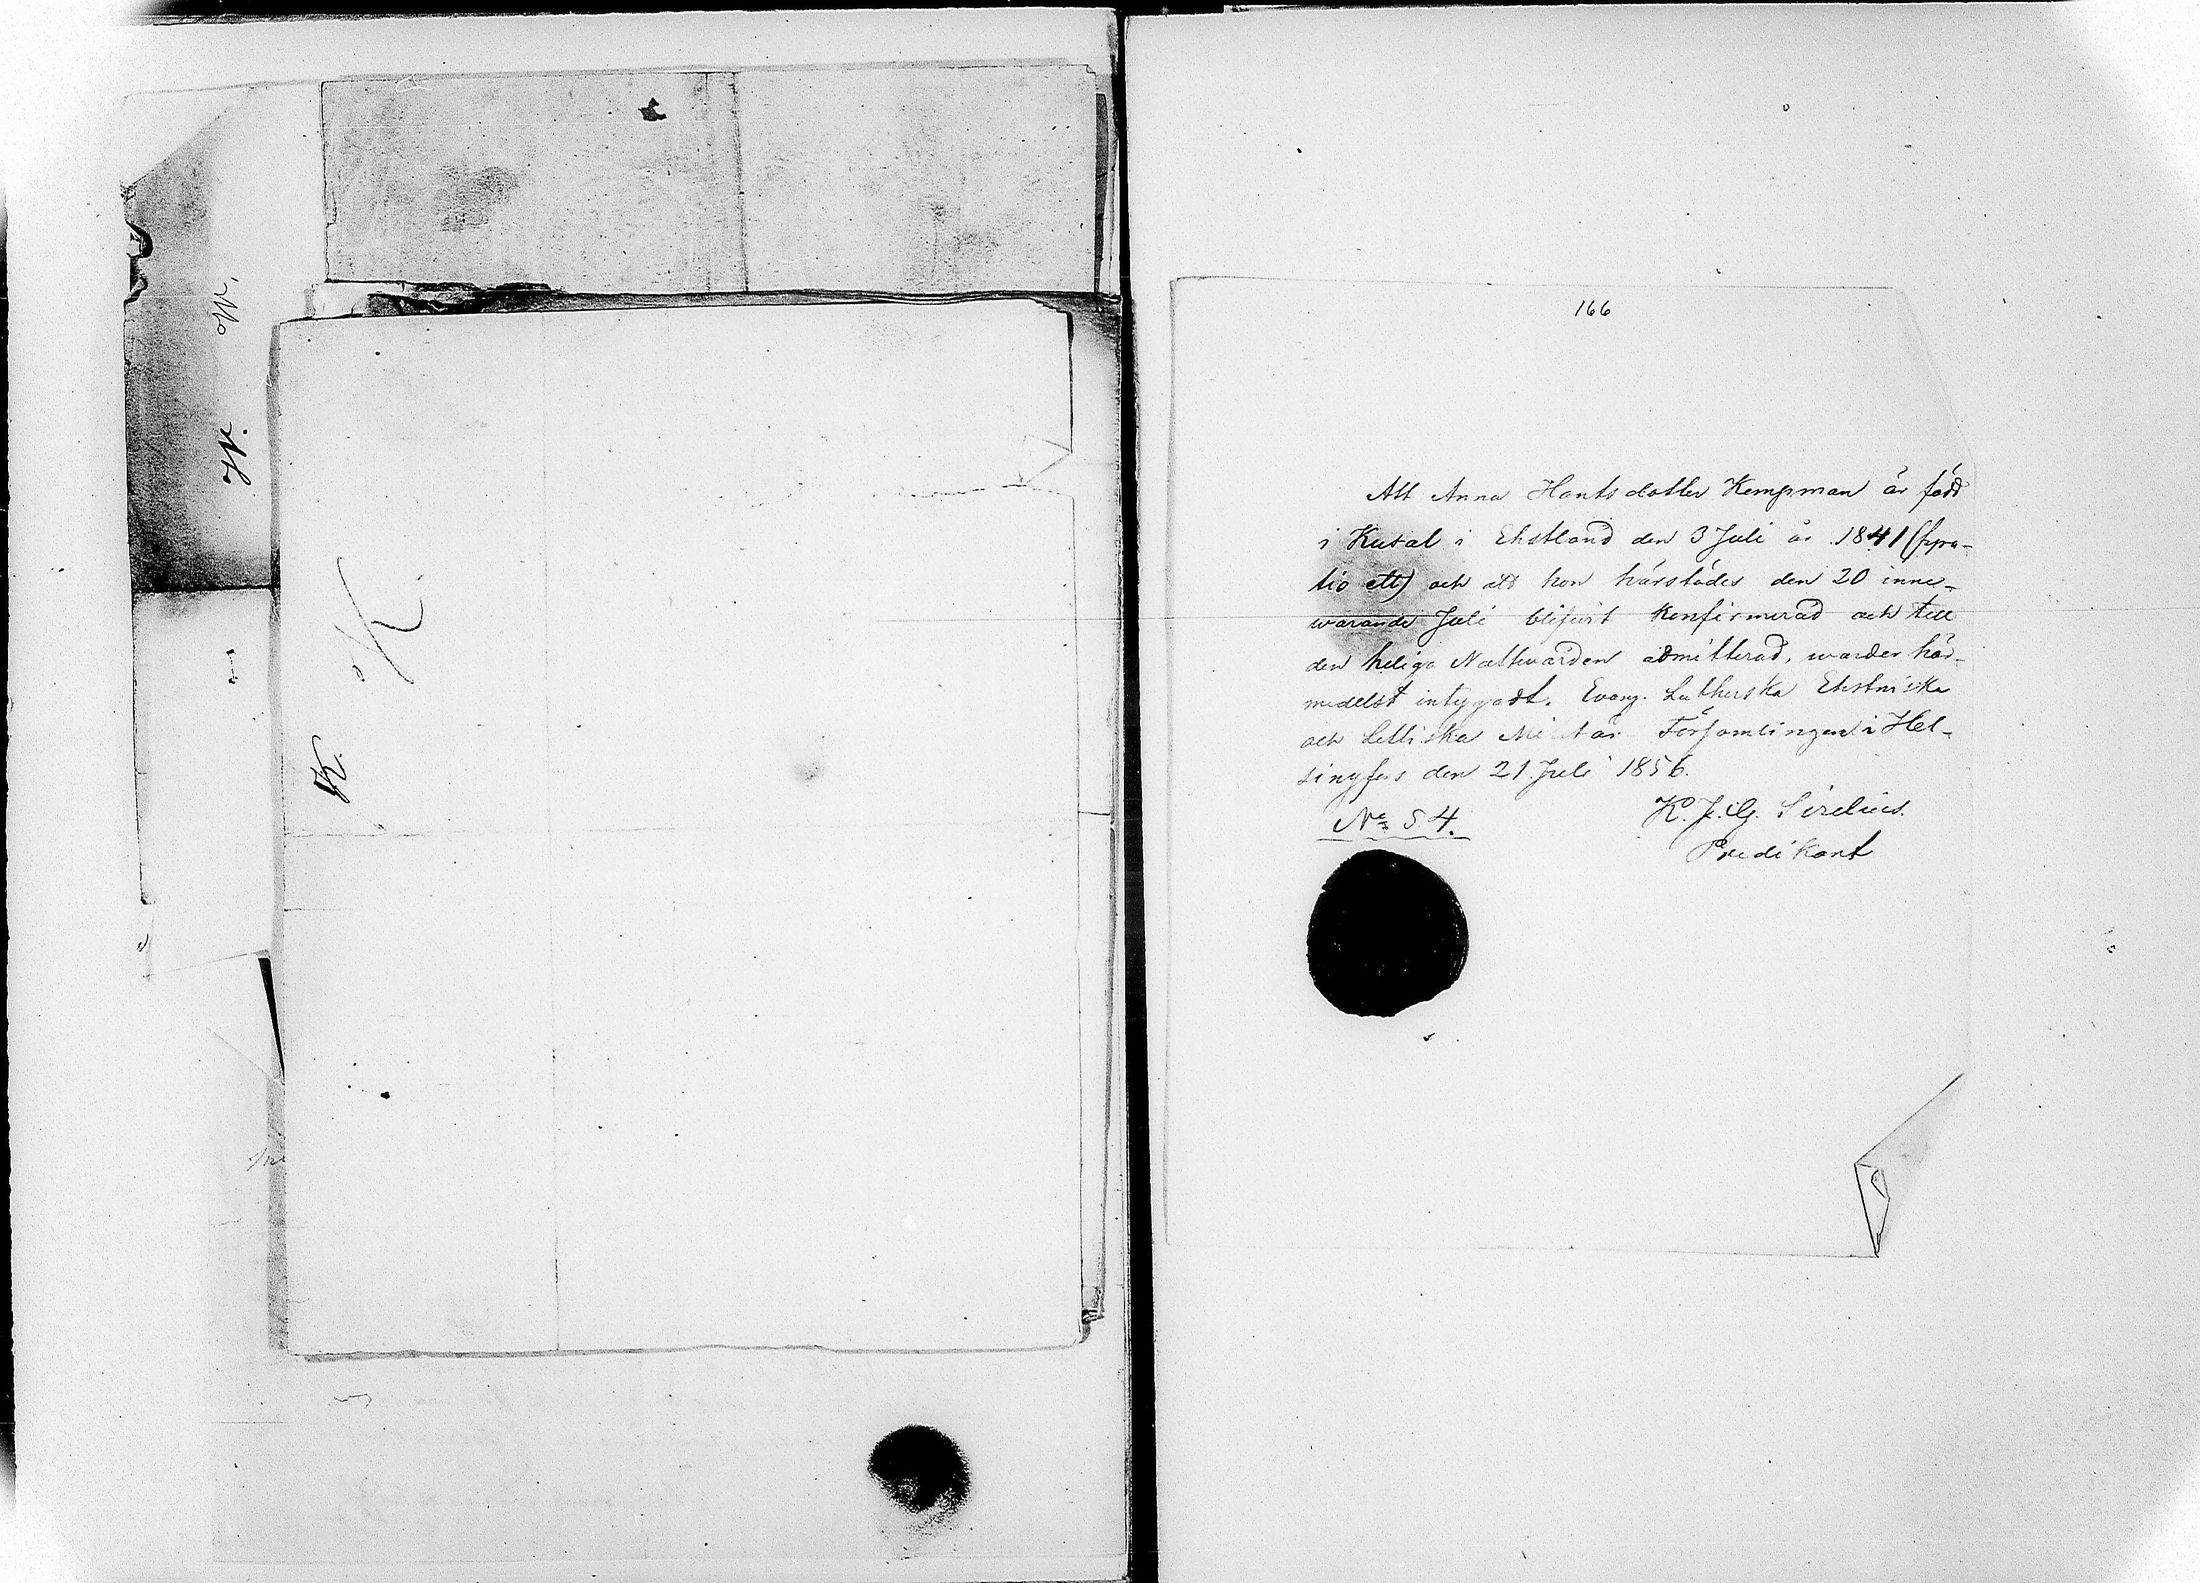 W.
W.
K
K.
166
Att Anna Hantsdotter Kempman är född
i Kusal i Ehstland den 3 Juli år 1841 (fyra-
tio ett) och att hon härstädes den 20 inne-
warande Juli blifwit Konfirmerad och till
den heliga Nattwarden admitterad, warder här-
medelst intygadt. Evang. Lutherska Ehstniska
och Lettiska Militär Församlingen i Hel-
singfors den 21 Juli 1856.
K. J. G. Sirelius.
Predikant
No 54.